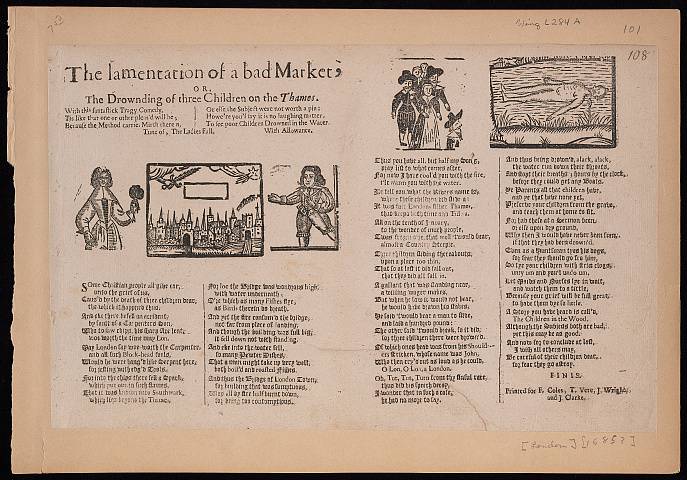 Wing L284A
101
108
The lamentation of a bad Market;
OR,
The Drownding of three Children on the Thames.
With this fantastick Tragy Comedy,
Tis like that one or other pleas'd will be,
Because the Method carrie. Mirth there n,
Or else the Subject were not worth a pin;
Howe're you'l say it is no laughing matter,
To see poor Children Drowned in the Water.
Tune of, The Ladies Fall.
With Allowance.
Some Christian people all give ear,
unto the grief of us,
Caus'd by the death of three children dear,
the which it happned thus.
And eke there befell an accident,
by fault of a Carpenters Son,
Who to saw chips his sharp Ax lent,
woe worth the time may Lon.
May London say woe worth the Carpenter,
and all such Block-head fools,
Would he were hang'd like Serpent here,
for jesting with edg'd Tools.
For into the chips there fell a Spark,
which put out in such flames,
That it was known into Southwark,
which lies beyond the Thames.
For loe the Bridge was wondrous high
with water underneath,
O're which as many fishes flye,
as Birds therein do breath.
And yet the fire consum'd the bridge,
not far from place of landing,
And though the building was full big,
it fell down not with standing.
And eke into the water fell,
so many Pewter Dishes,
That a man might take up very well,
both boil'd and roasted fishes.
And thus the Bridge of London Town,
for building that was sumptuous,
Was all by fire half burnt down,
for being too contumptious.
Thus you have all, but half my Song,
pray list to what comes after,
For now I have cool'd you with the fire,
I'le warm you with the water.
I'le tell you what the Rivers name's,
where these children did slide-a:
It was fair Londons swiftest Thames,
that keeps both time and Tide-a.
All on the tenth of January,
to the wonder of much people,
'Twas frozen o're, that well 'twould bear,
almost a Country Steeple.
Three Children sliding thereabouts,
upon a place too thin,
That so at last it did fall out,
that they did all fall in.
A gallant that was standing near,
a wilding wager makes,
But when he saw it would not bear,
He said 'twould bear a man to slide,
and laid a hundred pound:
The other said 'twould break, so it did,
for three children there were drown'd.
Of which ones head was from his Shoul-
ers stricken, whose name was John,
Who then cry'd out as loud as he could,
O Lon, O Lon, a London.
Oh, Tut, Tut, Turn from thy sinful race,
thus did his speech decay,
I wonder that in such a case,
he had no more to say.
And thus being drown'd, alack, alack,
the water run down their throats,
And stopt their breaths 3 hours by the clock,
before they could get any Boats.
Ye Parents all that children have,
and ye that have none yet,
Preserve your children from the grave,
and teach them at home to sit.
For had these at a Sermon been,
or else upon dry ground,
Why then I would have never been seen,
if that they had been drown'd.
Even as a Huntsman tyes his dogs,
for fear they should go fro him,
So tye your children with strict clogs,
unty um and you'l undo um.
Let Maids and Nurses lye in wait,
and watch them to a tittle;
Because your grief will be full great,
to have them dye so little.
A Story you have heard is call'd,
The Children in the Wood,
Although the Subjects both are bad,
yet this may be as good.
And now for to conclude at last,
I wish all others may,
Be careful of their children dear,
for fear they go astray.
FINIS.
Printed for F. Coles, T. Vere, J. Wright,
and J. Clarke.
[London] [1685?]